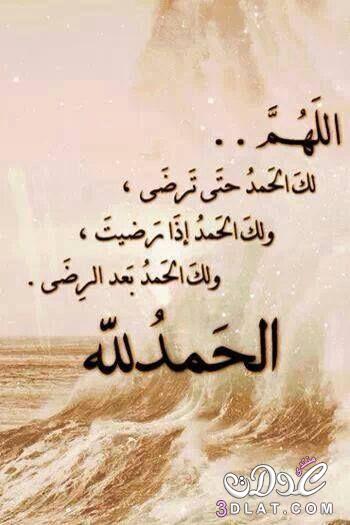 اللَهُمَّ . .
لكَ الحَمدُ حتَى تَرضَى ،
ولكَ الحَمدُ إذَا رَضيتَ ،
ولكَ الحَمدُ بَعد الرِضَى .
الحَمدُ لله
منتدى عدلات
3DLAT.COM